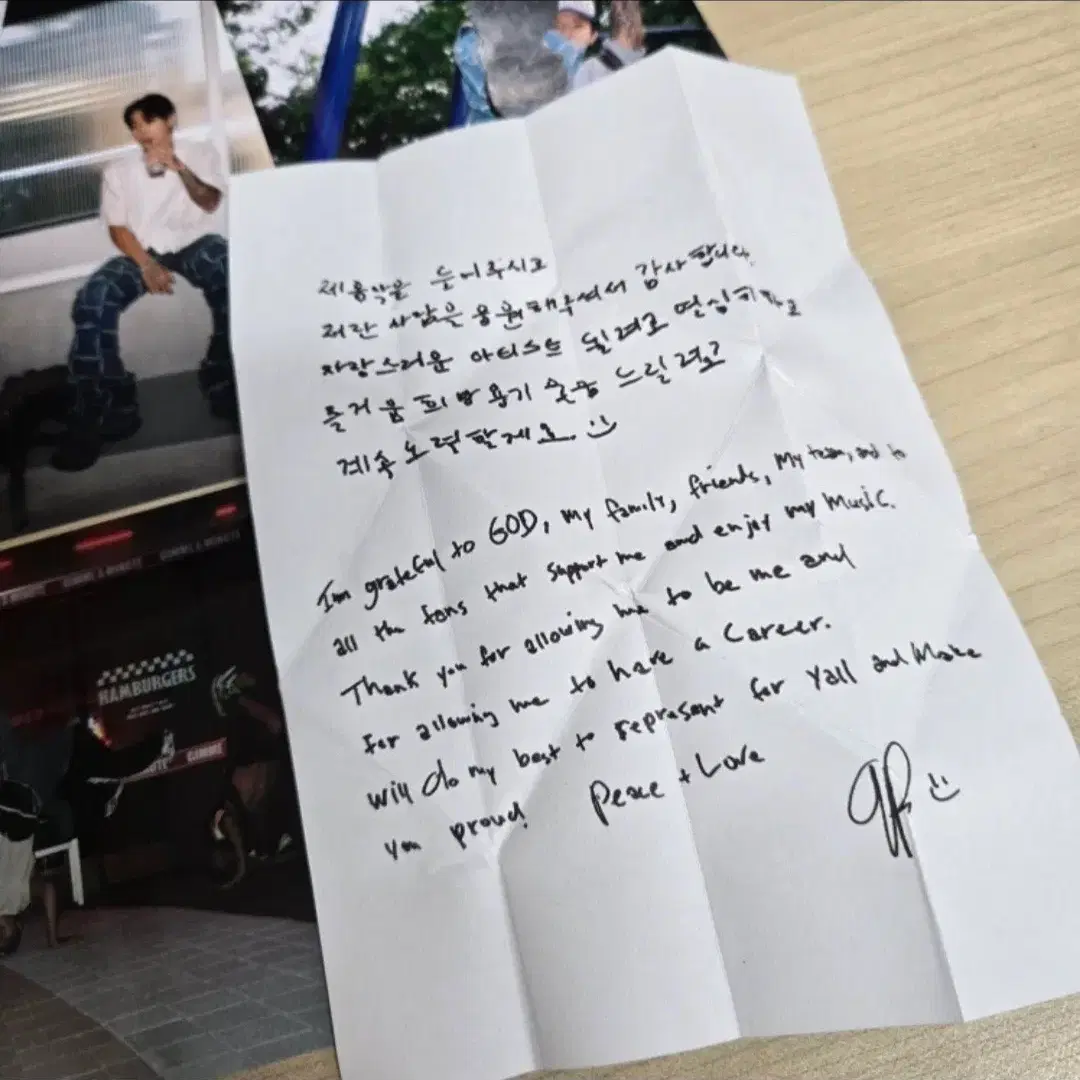 GIMME A MINUTE
GIMME A MINUTE
HAMBURGERS
GIMME
제 음악을 들어주시고
저란 사람은 응원해주셔서 감사합니다.
자랑스러운 아티스트 될려고 열심히하고
즐거움 희망 용기 술픔 느릴려고
계속 노력할게요. :)
I'm grateful to GOD, my family, friends, My team, and to
all the fans that support me and enjoy my Music.
Thank you for allowing me to be me and
for allowing me to have a Career.
will do my best to represent for Yall and Make
you proud! Peace + Love